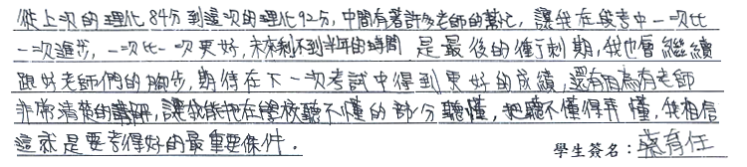 從上次的理化84分到這次的理化92分,中間有著許多老師的幫忙,讓我在段考中一次比
一次進步,一次比一次更好,未來剩不到半年的時間是最後的衝刺期,我也會繼續
跟好老師們的腳步,期待在下一次考試中得到更好的成績,還有因為有老師
非常清楚的講解,讓我能把在學校聽不懂的部分聽懂,把聽不懂得弄懂,我相信
這就是要考得好的最重要條件.
學生簽名:蔡育任